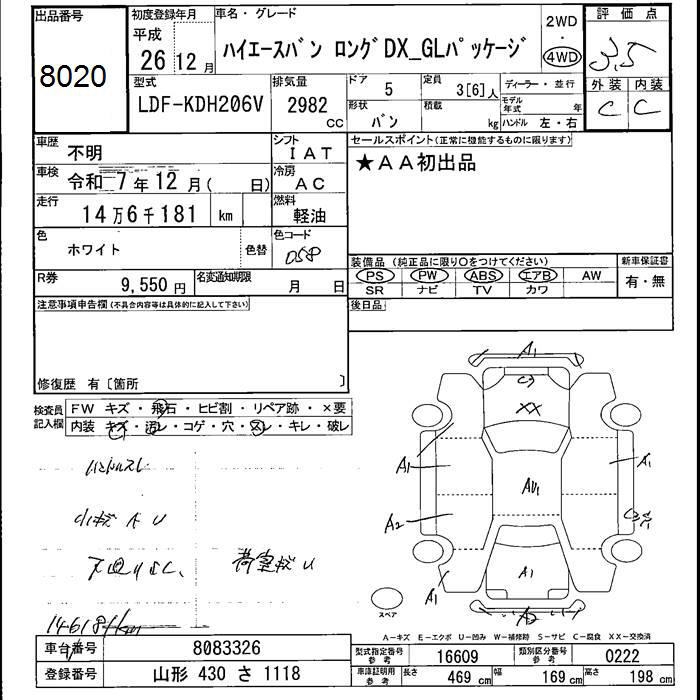 出品番号
8020
初度登録年月
平成
26 12 月
車名・グレード
ハイエースバン ロングDX_GLパッケージ
2WD
・
4WD
評価点
3.5
外装 内装
C C
型式
LDF-KDH206V
排気量
2982 CC
ドア
5
定員
3[6] 人
形状
バン
積載
kg
ディーラー・並行
モデル年式 年
ハンドル 左・右
車歴
不明
シフト
IAT
車検
令和 7 年 12 月 ( 日)
冷房
AC
走行
14万6千181 km
燃料
軽油
色
ホワイト
色替
色コード
058
R券
9,550 円
名変通知期限
月 日
セールスポイント(正常に機能するものに限ります)
★AA初出品
装備品 (純正品に限り○をつけてください)
PS PW ABS エアB AW
SR ナビ TV カワ
新車保証書
有・無
後日品
注意事項申告欄(不具合内容等は具体的に記入して下さい)
修復歴 有〔箇所 〕
検査員記入欄
FW キズ・飛石・ヒビ割・リペア跡・×要
内装 キズ・汚レ・コゲ・穴・スレ・キレ・破レ
ハンドルスレ
小キズ A U
荷室キズ U
146181km
A1
C3
XX
A1
A1
AU1
A2
A1
A1
A2
スペア
A―キズ E―エクボ U―凹み W―補修跡 S―サビ C―腐食 XX―交換済
車台番号
8083326
登録番号
山形 430 さ 1118
型式指定番号 参考
16609
類別区分番号 参考
0222
車庫証明用 参考
長さ 469 cm
幅 169 cm
高さ 198 cm